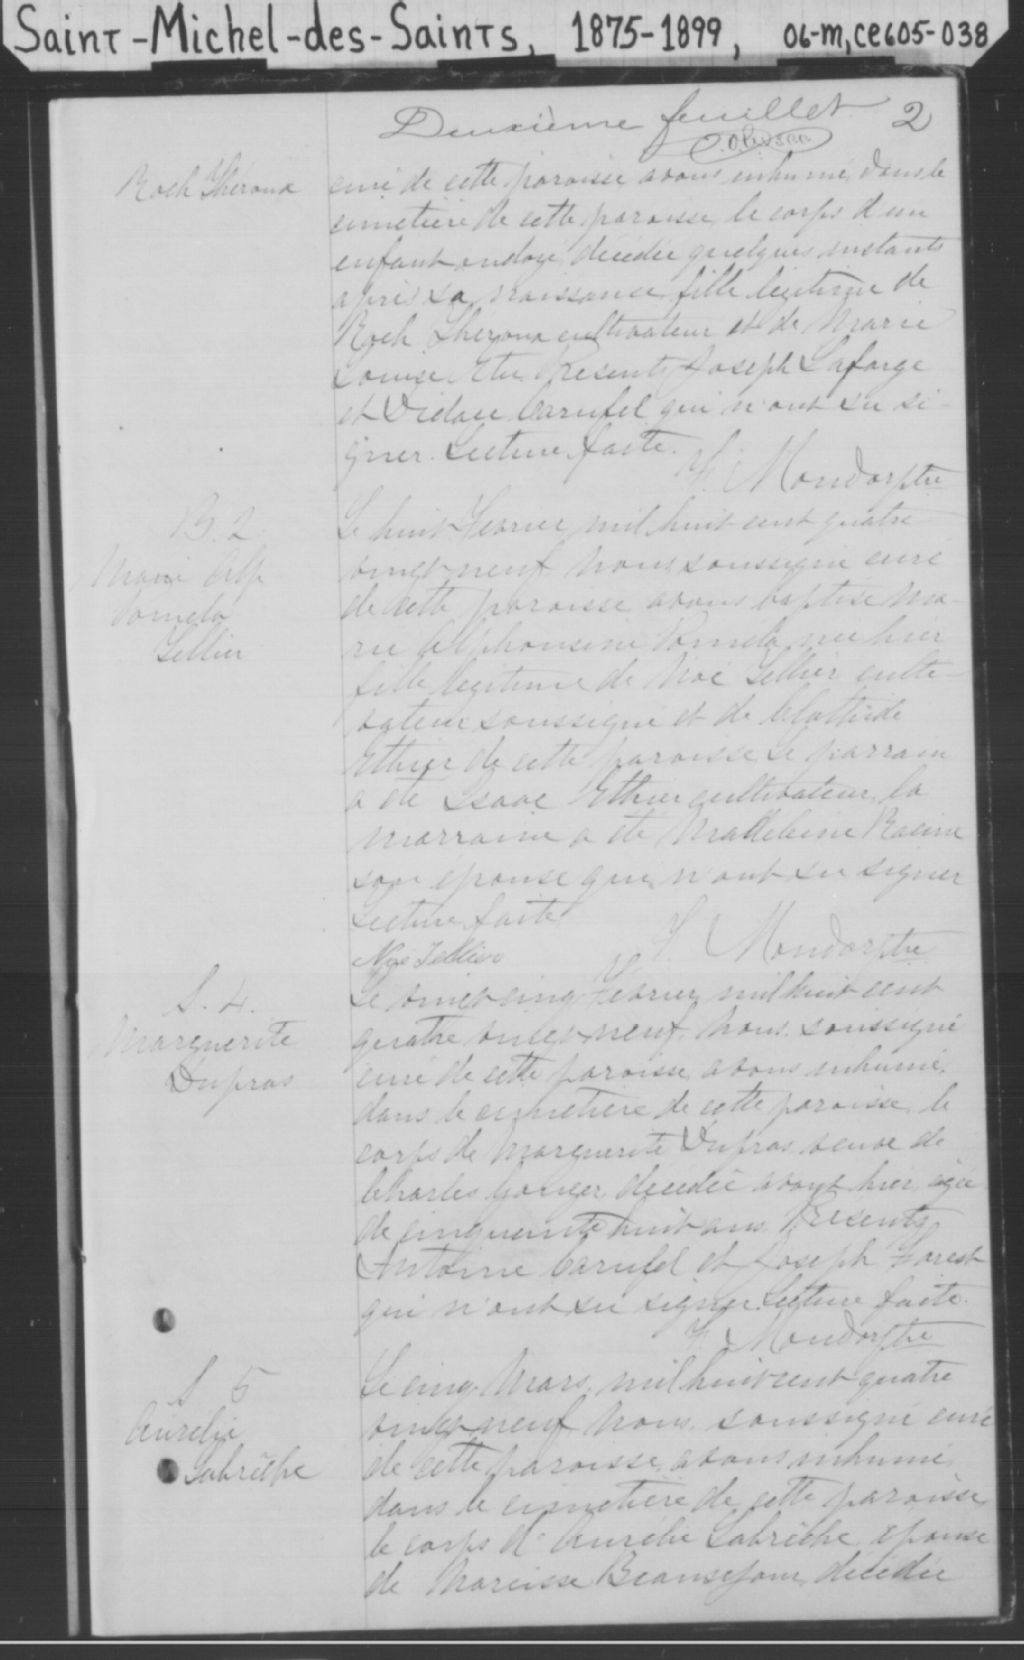 Saint-Michel-des-Saints, 1875-1899, 06-M, CE605-038
Deuxième feuillet 2
Roch Théroux
curé de cette paroisse avons inhumé dans le
cimetière de cette paroisse le corps d'un
enfant ondoyé décédée quelques instants
après sa naissance fille légitime de
Roch Théroux cultivateur et de Marie
Louise Présents Joseph Lafarge
et Carufel qui n'ont su si-
gner. Lecture faite.
Mondor ptre
B. 2.
Marie Alp
Pamela
Tellier
Le huit Fevrier mil huit cent quatre
vingt neuf nous soussigné curé
de cette paroisse avons baptisé Ma-
rie Alphonsine Pamela née hier
fille légitime de Noé Tellier culti-
vateur soussigné et de Clothilde
Ethier de cette paroisse Le parrain
a été Isaac Ethier cultivateur la
marraine a été Madeleine Racine
son épouse qui n'ont su signer
Lecture faite
Noé Tellier Mondor ptre
S. 4.
Marguerite
Dupras
Le vingt cinq Fevrier mil huit cent
quatre vingt neuf nous soussigné
curé de cette paroisse avons inhumé
dans le cimetière de cette paroisse le
corps de Marguerite Dupras veuve de
Charles décédée avant hier agée
de cinquante huit ans. Présents
Antoine Carufel et Joseph Forest
qui n'ont su signer Lecture faite.
Mondor ptre
S 5
Aurélie
Labrèche
Le cinq Mars mil huit cent quatre
vingt neuf nous soussigné curé
de cette paroisse avons inhumé
dans le cimetière de cette paroisse
le corps d'Aurélie Labrèche épouse
de Narcisse Beausejour décédée